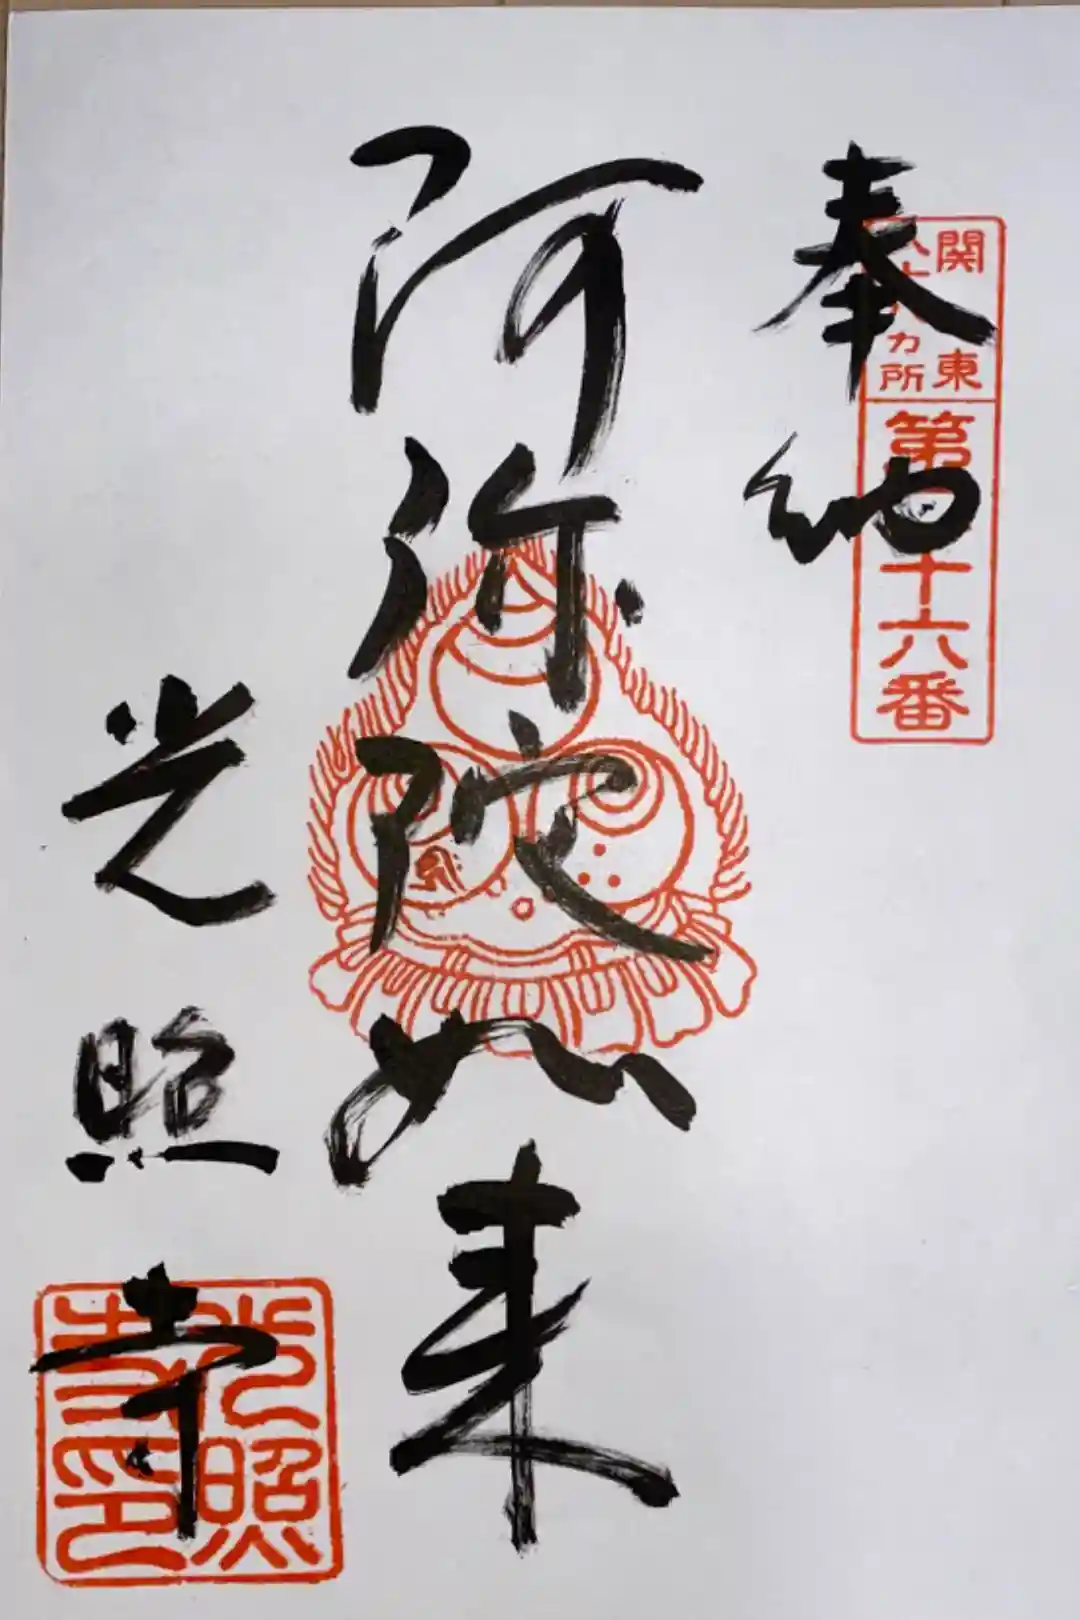 奉納
関東
八十八カ所
第 十六番
阿弥陀如来
光照寺
光照
寺印